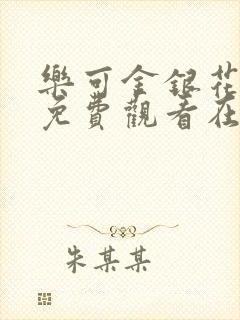 樂可金銀花
免費觀看在
朱某某